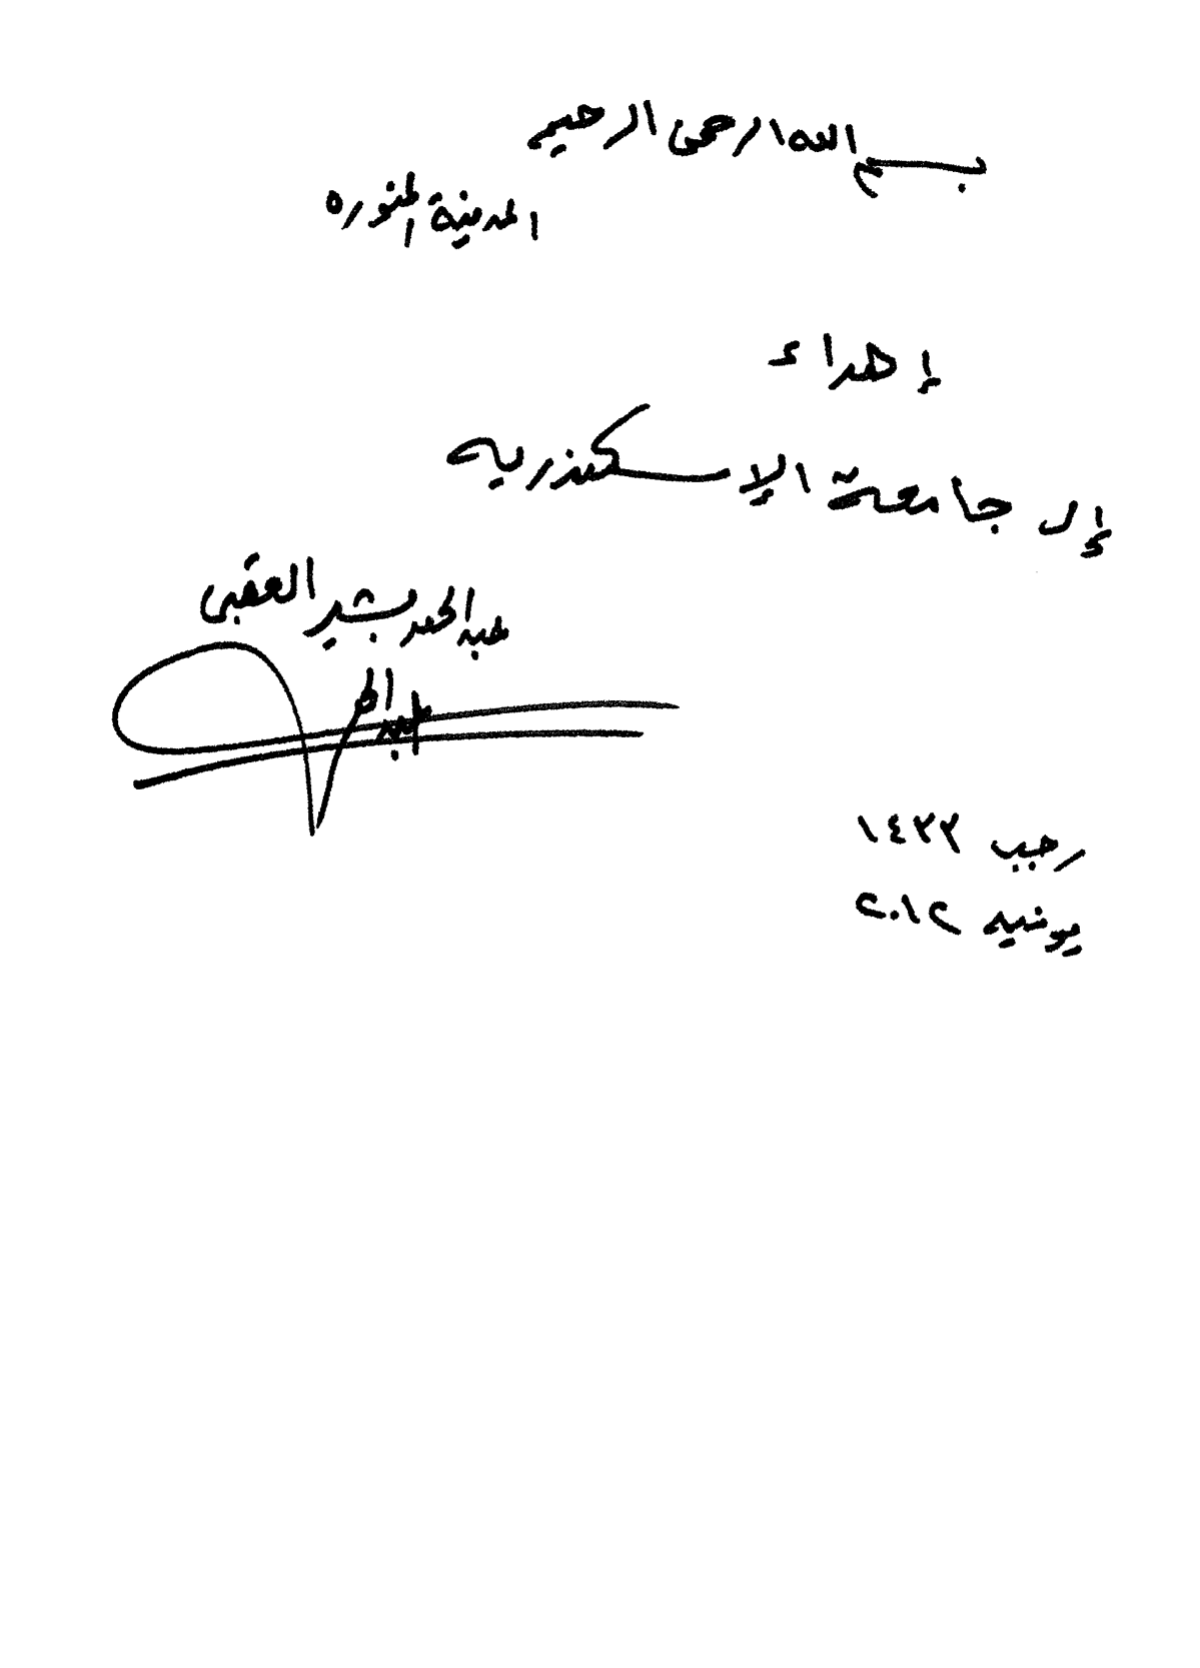 بسم الله الرحمن الرحيم
المدينة المنوره
إهداء
إلى جامعة الإسكندريه
عبد الحميد بشير العقبي
رجب ١٤٣٣
يونيه ٢٠١٢